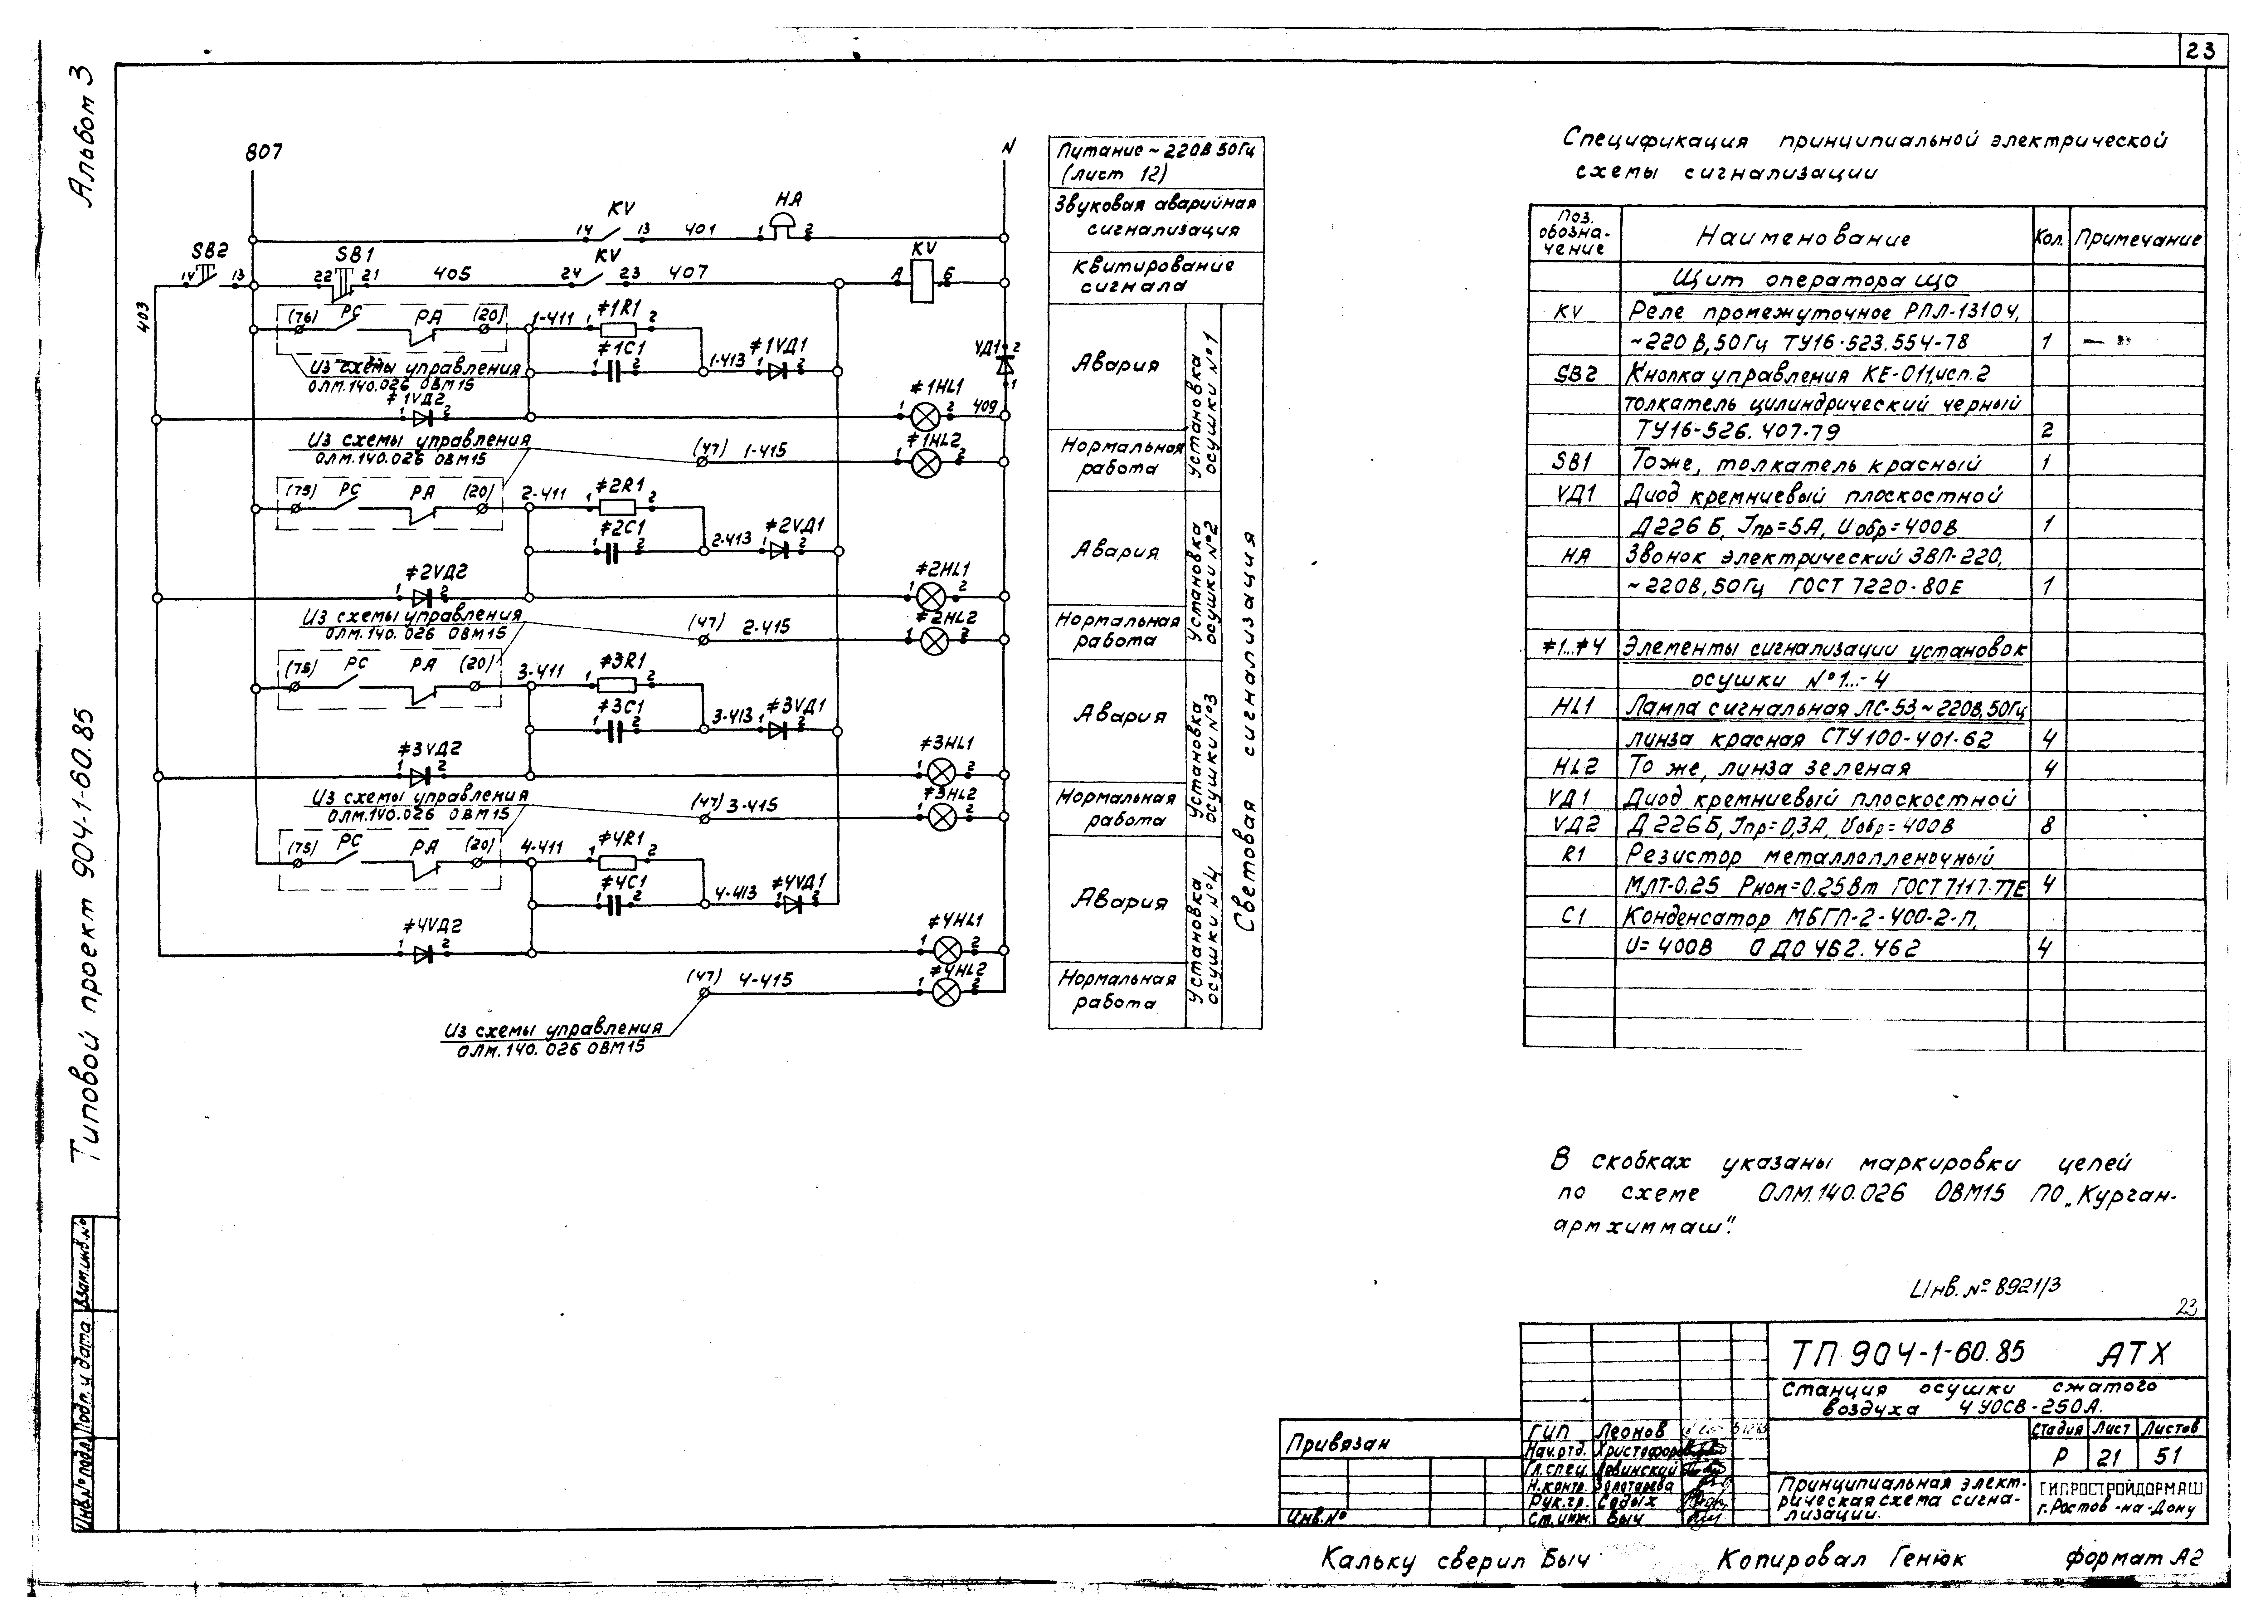 23
Альбом 3
Типовой проект 904-1-60.85
807
N
KV
HA
14 13 401 1 2
SB2
SB1
KV
KV
14 13 22 21 405 24 23 407 А Б
403
(76) РС РА (20) 1-411 #1R1
1 2
#1С1
1-413 #1VД1
VД1
2
1
Из схемы управления
ОЛМ.140.026 ОВМ15
#1VД2
#1HL1
409
Из схемы управления
ОЛМ.140.026 ОВМ15
(47) 1-415
#1HL2
(75) РС РА (20) 2-411 #2R1
#2С1
2-413 #2VД1
#2VД2
#2HL1
Из схемы управления
ОЛМ.140.026 ОВМ15
(47) 2-415
#2HL2
(75) РС РА (20) 3-411 #3R1
#3С1
3-413 #3VД1
#3VД2
#3HL1
Из схемы управления
ОЛМ.140.026 ОВМ15
(47) 3-415
#3HL2
(75) РС РА (20) 4-411 #4R1
#4С1
4-413 #4VД1
#4VД2
#4HL1
(47) 4-415
#4HL2
Из схемы управления
ОЛМ.140.026 ОВМ15
Питание ~220В 50Гц
(лист 12)
Звуковая аварийная
сигнализация
Квитирование
сигнала
Авария
Нормальная
работа
Установка
осушки №1
Авария
Нормальная
работа
Установка
осушки №2
Авария
Нормальная
работа
Установка
осушки №3
Авария
Нормальная
работа
Установка
осушки №4
Световая сигнализация
Спецификация принципиальной электрической
схемы сигнализации
Поз.
обозна-
чение
Наименование
Кол.
Примечание
Щит оператора ЩО
KV Реле промежуточное РПЛ-13104,
~220В, 50Гц ТУ16.523.554-78 1
SB2 Кнопка управления КЕ-011, исп. 2
толкатель цилиндрический черный
ТУ16-526.407-79 2
SB1 То же, толкатель красный 1
VД1 Диод кремниевый плоскостной
Д226Б, Iпр=5А, Uобр=400В 1
НА Звонок электрический ЗВП-220,
~220В, 50Гц ГОСТ 7220-80Е 1
#1...#4 Элементы сигнализации установок
осушки №1...4
HL1 Лампа сигнальная ЛС-53, ~220В, 50Гц
линза красная СТУ100-401-62 4
HL2 То же, линза зеленая 4
VД1 Диод кремниевый плоскостной
VД2 Д226Б, Iпр=0,3А, Uобр=400В 8
R1 Резистор металлопленочный
МЛТ-0.25 Рном=0.25Вт ГОСТ7117-77Е 4
С1 Конденсатор МБГП-2-400-2-П,
U=400В ОД0462.462 4
В скобках указаны маркировки цепей
по схеме ОЛМ.140.026 ОВМ15 ПО „Курган-
армхиммаш".
Инв. № 8921/3
23
ТП 904-1-60.85 АТХ
Станция осушки сжатого
воздуха 4УОСВ-250А.
Стадия Лист Листов
Р 21 51
Принципиальная элект-
рическая схема сигна-
лизации.
ГИПРОСТРОЙДОРМАШ
г. Ростов-на-Дону
ГИП Леонов
Нач.отд. Христофоров
Гл.спец. Левинский
Н.контр. Золотарева
Рук.гр. Седых
Ст.инж. Быч
Привязан
Инв.№
Взам.инв.№
Подп. и дата
Инв.№ подл.
Кальку сверил Быч
Копировал Генюк
формат А2